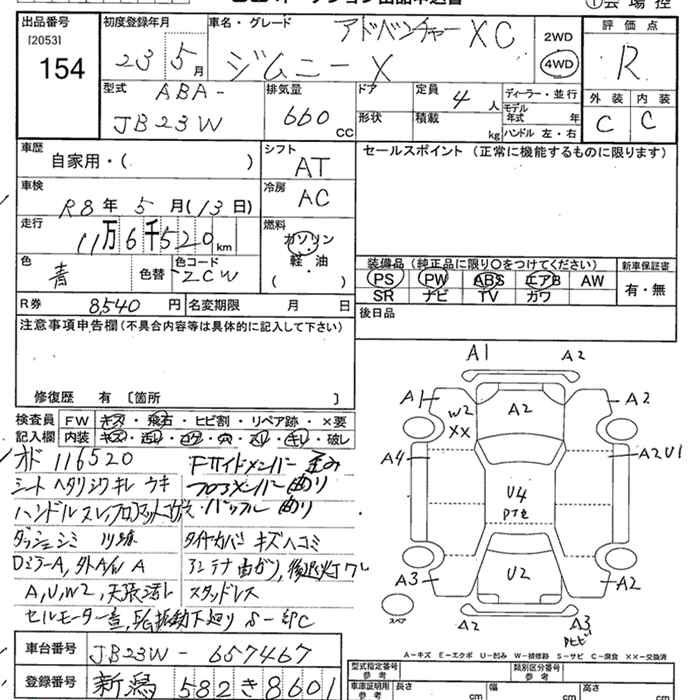 出品番号
[2053]
154
初度登録年月
23 5月
車名・グレード
アドベンチャー XC
ジムニー X
2WD
4WD
評価点
R
外装 内装
C C
型式
ABA-
JB23W
排気量
660 CC
ドア
形状
定員 4 人
積載 kg
ディーラー・並行
モデル年式 年
ハンドル 左・右
車歴
自家用・( )
シフト
AT
セールスポイント (正常に機能するものに限ります)
車検
R8年 5月(13日)
冷房
AC
走行
11万6千520km
燃料
ガソリン
・
軽・油
( )
色
青
色替
色コード
ZCW
装備品 (純正品に限り○をつけてください)
新車保証書
PS PW ABS エアB AW
SR ナビ TV カワ
有・無
R券 8,540円
名変期限 月 日
後日品
注意事項申告欄(不具合内容等は具体的に記入して下さい)
修復歴 有 〔箇所 〕
検査員記入欄
FW キズ・飛石・ヒビ割・リペア跡・×要
内装 キズ・汚レ・コゲ・穴・スレ・キレ・破レ
メド 116520
シート ヘタリ シワ キレ ウキ
ハンドル スレ,フロアマットコゲ穴
ダッシュシミ
DミラーA,外A/W A
A,U,W2,天張汚レ
セルモーター音,
下廻り S-部C
Fサイドメンバー 歪み
フロアメンバー 曲り
・バッフル 曲り
タイヤカバー キズヘコミ
アンテナ曲がり,後退灯ワレ
スタッドレス
A1
A2
A1
W2
XX
A2
A2
A4
A2U1
U4
PTセ
A3
U2
A2
スペア
A2
A3
Pヒビ
A-キズ E-エクボ U-凹み W-補修跡 S-サビ C-腐食 ××-交換済
車台番号
JB23W-657467
登録番号
新潟 582 き 8601
型式指定番号
参考
類別区分番号
参考
車庫証明用
参考
長さ cm
幅 cm
高さ cm